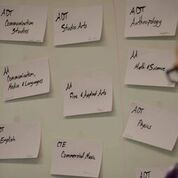 ADT
Communication
Studies
ADT
Studio Arts
ADT
Anthropology
AA
Communication,
Media & Languages
AA
Fine & Applied Arts
AA
Math & Science
ADT
English
CTE
Commercial Music
ADT
Physics
ADT